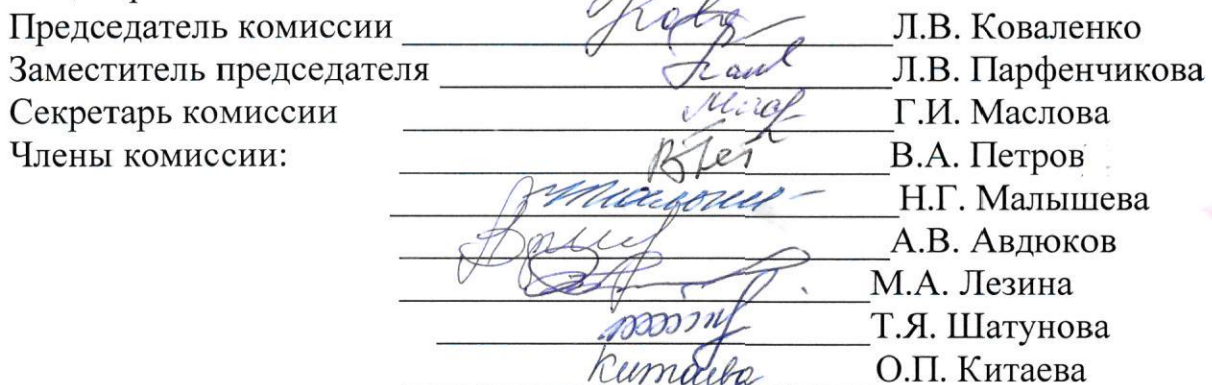 Председатель комиссии Л.В. Коваленко
Заместитель председателя Л.В. Парфенчикова
Секретарь комиссии Г.И. Маслова
Члены комиссии: В.А. Петров
Н.Г. Малышева
А.В. Авдюков
М.А. Лезина
Т.Я. Шатунова
Китаева О.П. Китаева